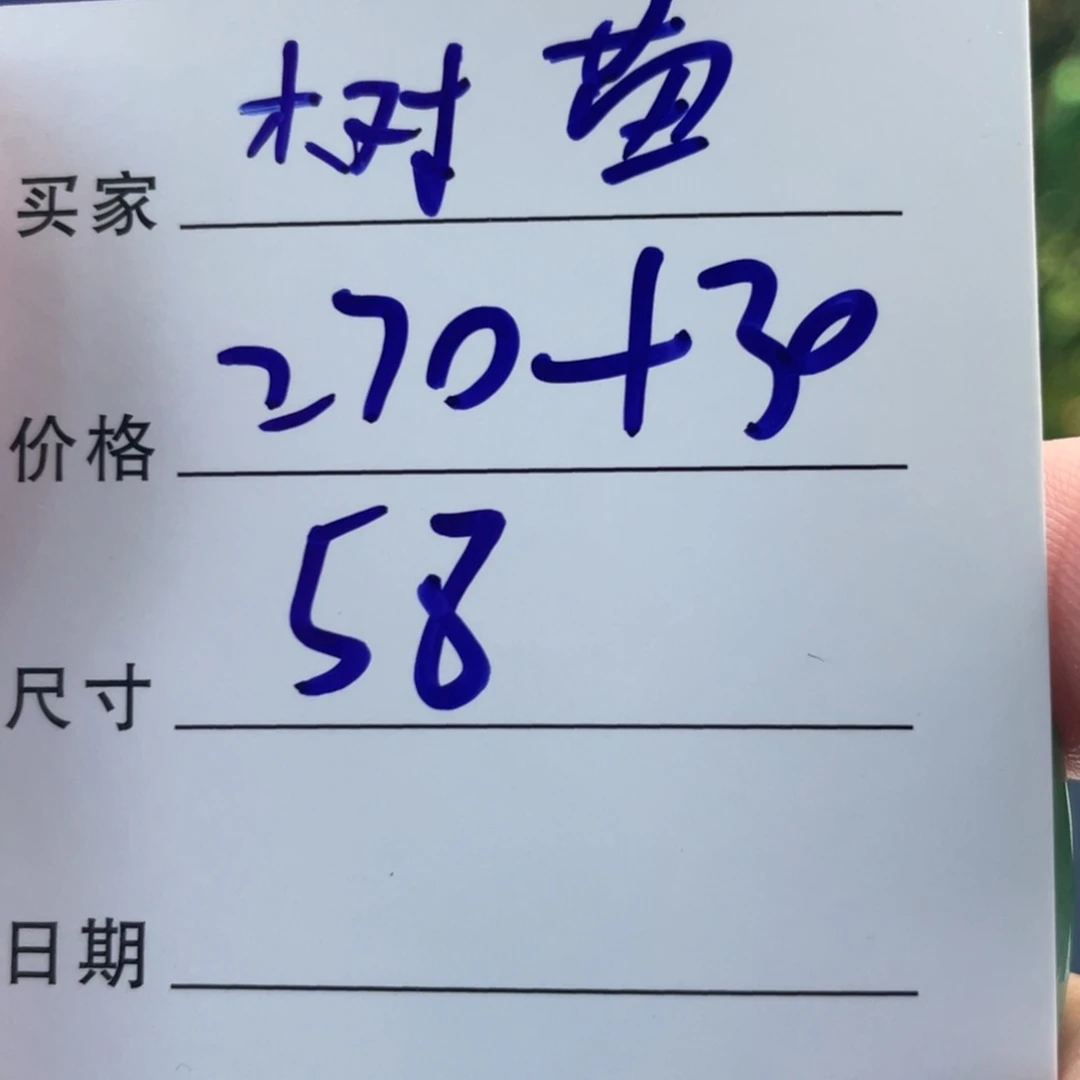 买家 树苗
价格 270+30
尺寸 58
日期